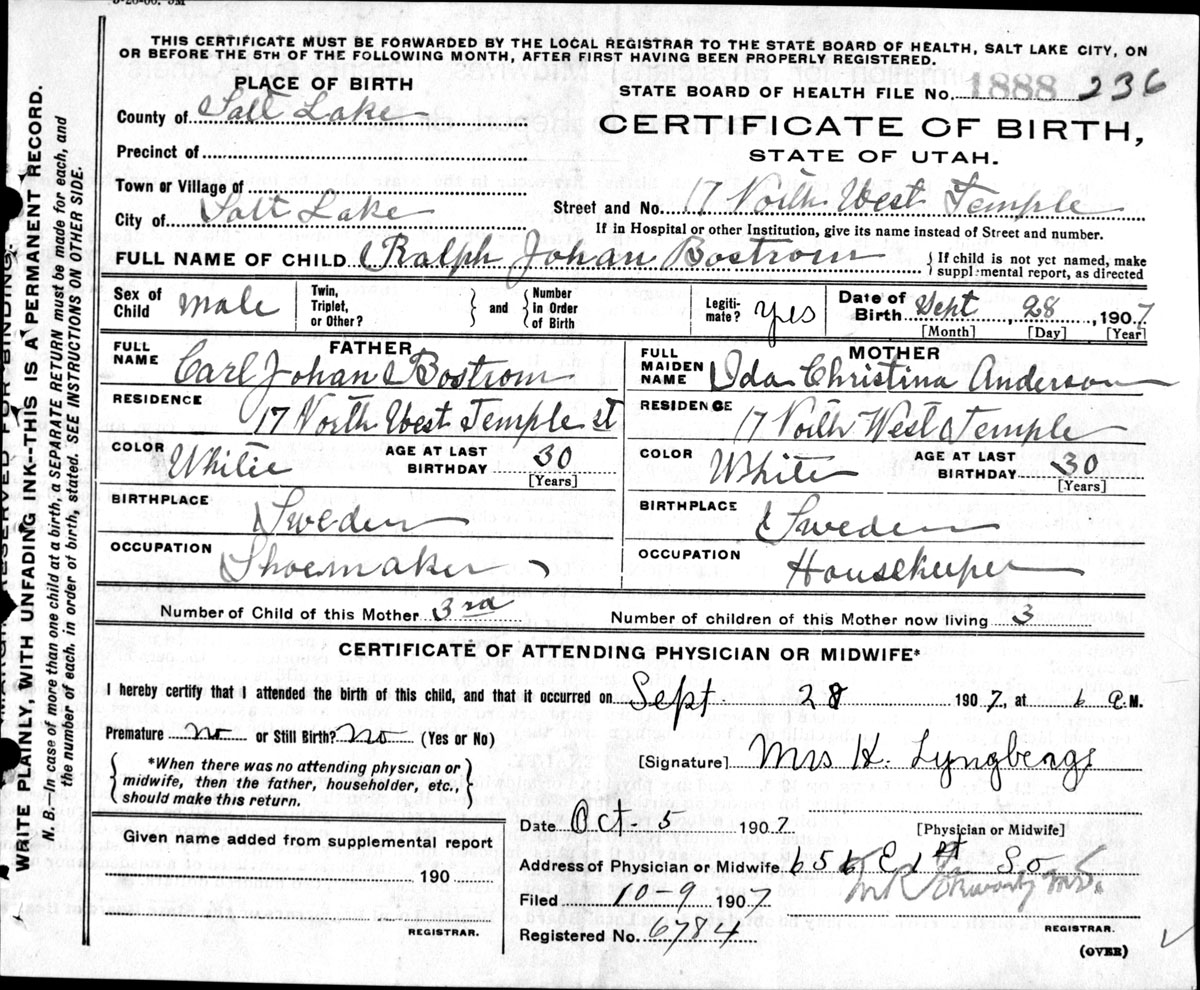 THIS CERTIFICATE MUST BE FORWARDED BY THE LOCAL REGISTRAR TO THE STATE BOARD OF HEALTH, SALT LAKE CITY, ON
OR BEFORE THE 5TH OF THE FOLLOWING MONTH, AFTER FIRST HAVING BEEN PROPERLY REGISTERED.
PLACE OF BIRTH
STATE BOARD OF HEALTH FILE No. 1888 236
County of Salt Lake
CERTIFICATE OF BIRTH,
STATE OF UTAH.
Precinct of
Town or Village of
City of Salt Lake
Street and No. 17 North West Temple
If in Hospital or other Institution, give its name instead of Street and number.
FULL NAME OF CHILD Ralph Johan Bostrom
If child is not yet named, make
supplmental report, as directed
Sex of Child male
Twin, Triplet, or Other? and Number in Order of Birth
Legitimate? Yes
Date of Birth Sept 28, 1907
[Month] [Day] [Year]
FATHER
FULL NAME Carl Johan Bostrom
RESIDENCE 17 North West Temple st
COLOR White AGE AT LAST BIRTHDAY 30
[Years]
BIRTHPLACE Sweden
OCCUPATION Shoemaker
MOTHER
FULL MAIDEN NAME Ida Christina Anderson
RESIDENCE 17 North West Temple
COLOR White AGE AT LAST BIRTHDAY 30
[Years]
BIRTHPLACE Sweden
OCCUPATION Housekeeper
Number of Child of this Mother 3rd Number of children of this Mother now living 3
CERTIFICATE OF ATTENDING PHYSICIAN OR MIDWIFE*
I hereby certify that I attended the birth of this child, and that it occurred on Sept. 28 1907, at 6 M.
Premature no or Still Birth? No (Yes or No)
*When there was no attending physician or
midwife, then the father, householder, etc.,
should make this return.
[Signature] Mrs H. Lyngberg
Date Oct - 5 1907 [Physician or Midwife]
Given name added from supplemental report
190
REGISTRAR.
Address of Physician or Midwife 656 E 1st So
Filed 10-9 1907
Registered No. 6784
REGISTRAR.
(OVER)
RESERVED FOR BINDING.
WRITE PLAINLY, WITH UNFADING INK--THIS IS A PERMANENT RECORD.
N. B.—In case of more than one child at a birth, a SEPARATE RETURN must be made for each, and
the number of each. in order of birth, stated. SEE INSTRUCTIONS ON OTHER SIDE.